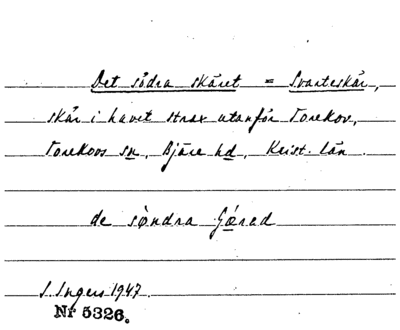 Det södra skäret = Svarteskär,
skär i havet strax utanför Torekov,
Torekovs sn, Bjäre hd, Krist. län.
de söndra
I. Ingers 1947.
Nr 5326.